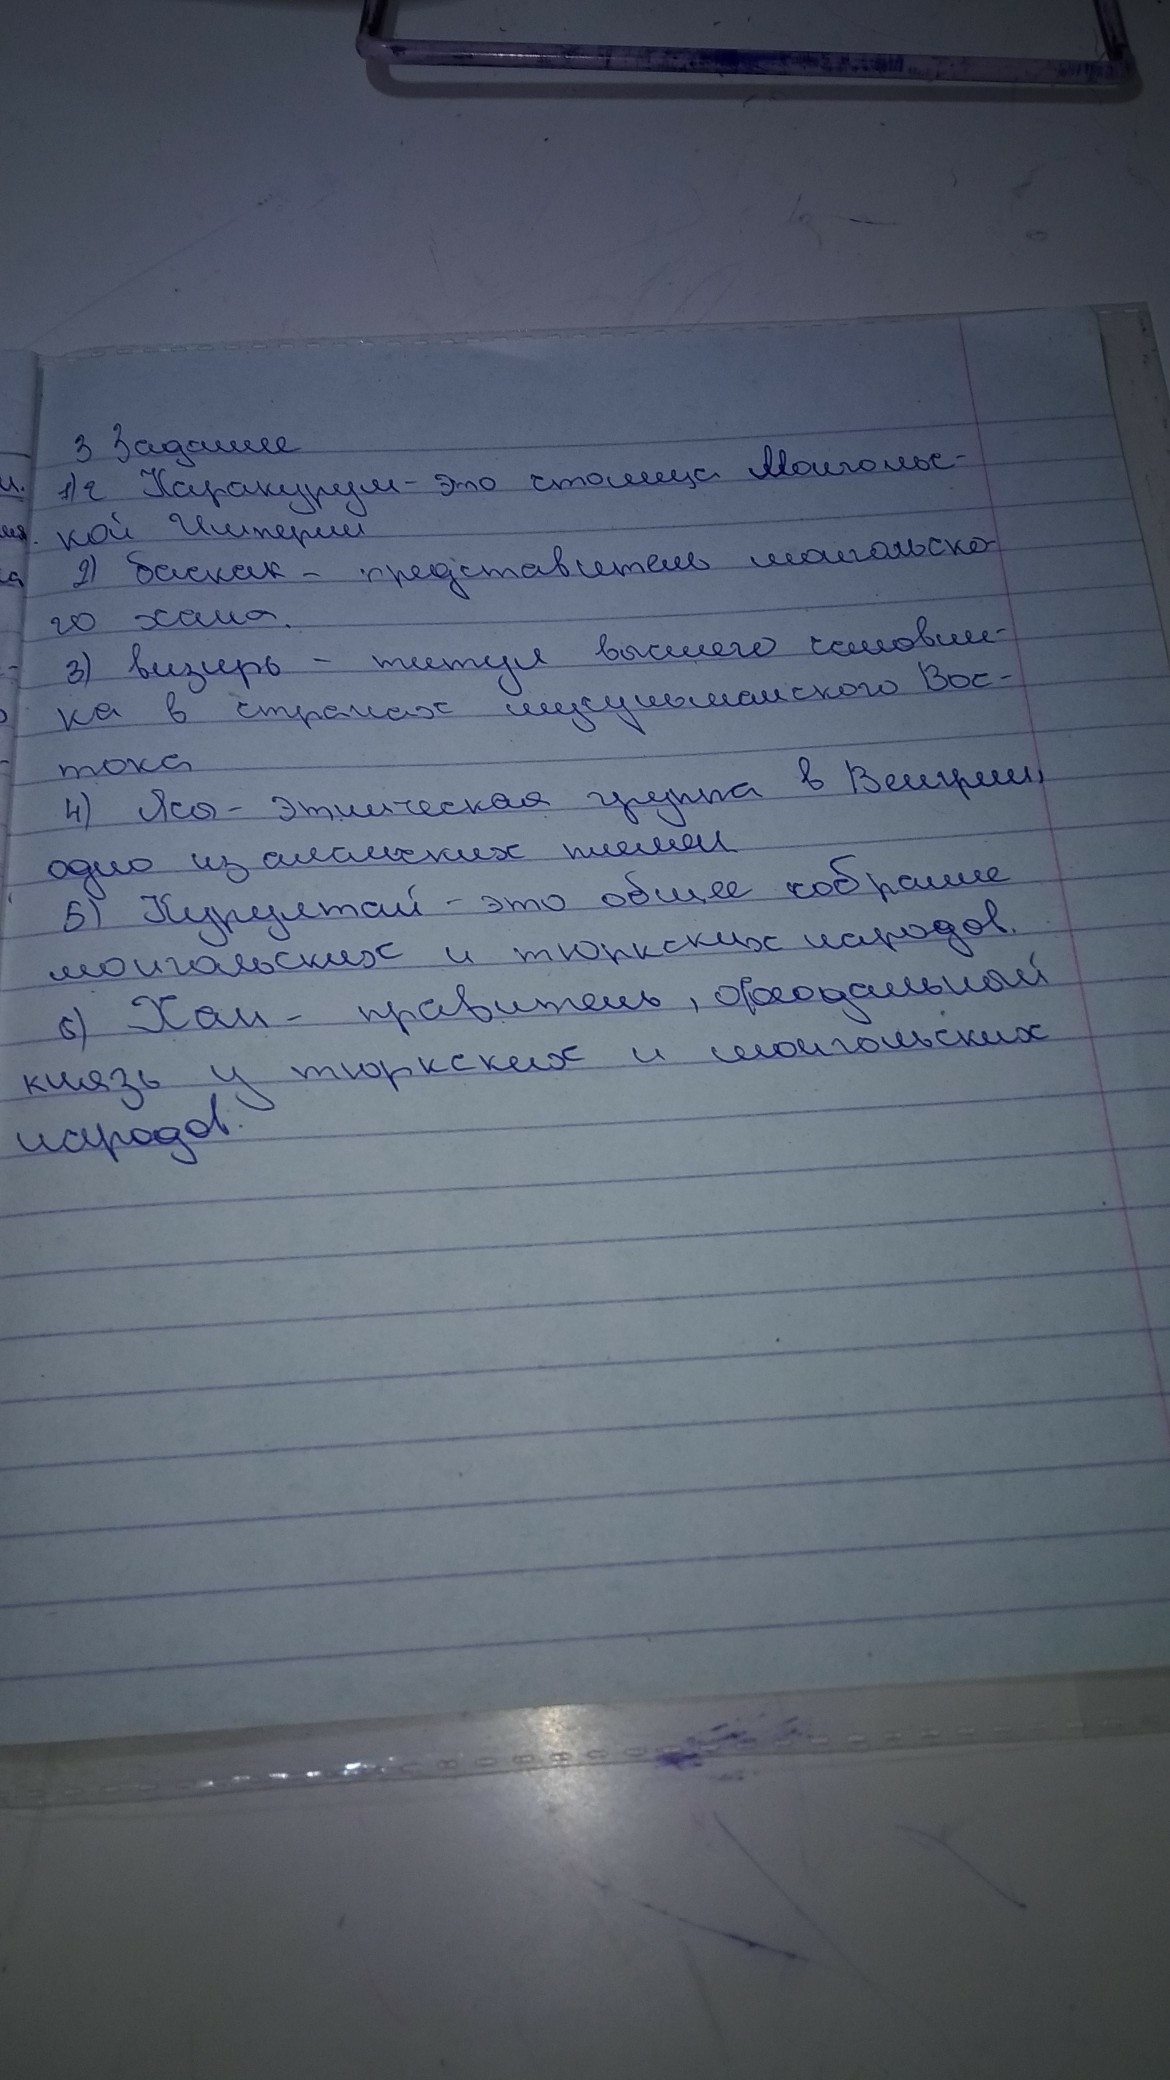 3 Задание
1) г Каракурум - это столица Монгольс-
кой Империи
2) баскак - представитель монгольско-
го хана.
3) визирь - титул высшего чиновни-
ка в странах мусульманского Вос-
тока
4) Яса - этническая группа в Венгрии,
одно из аланских племен
5) Курултай - это общее собрание
монгольских и тюркских народов.
6) Хан - правитель, феодальный
князь у тюркских и монгольских
народов.